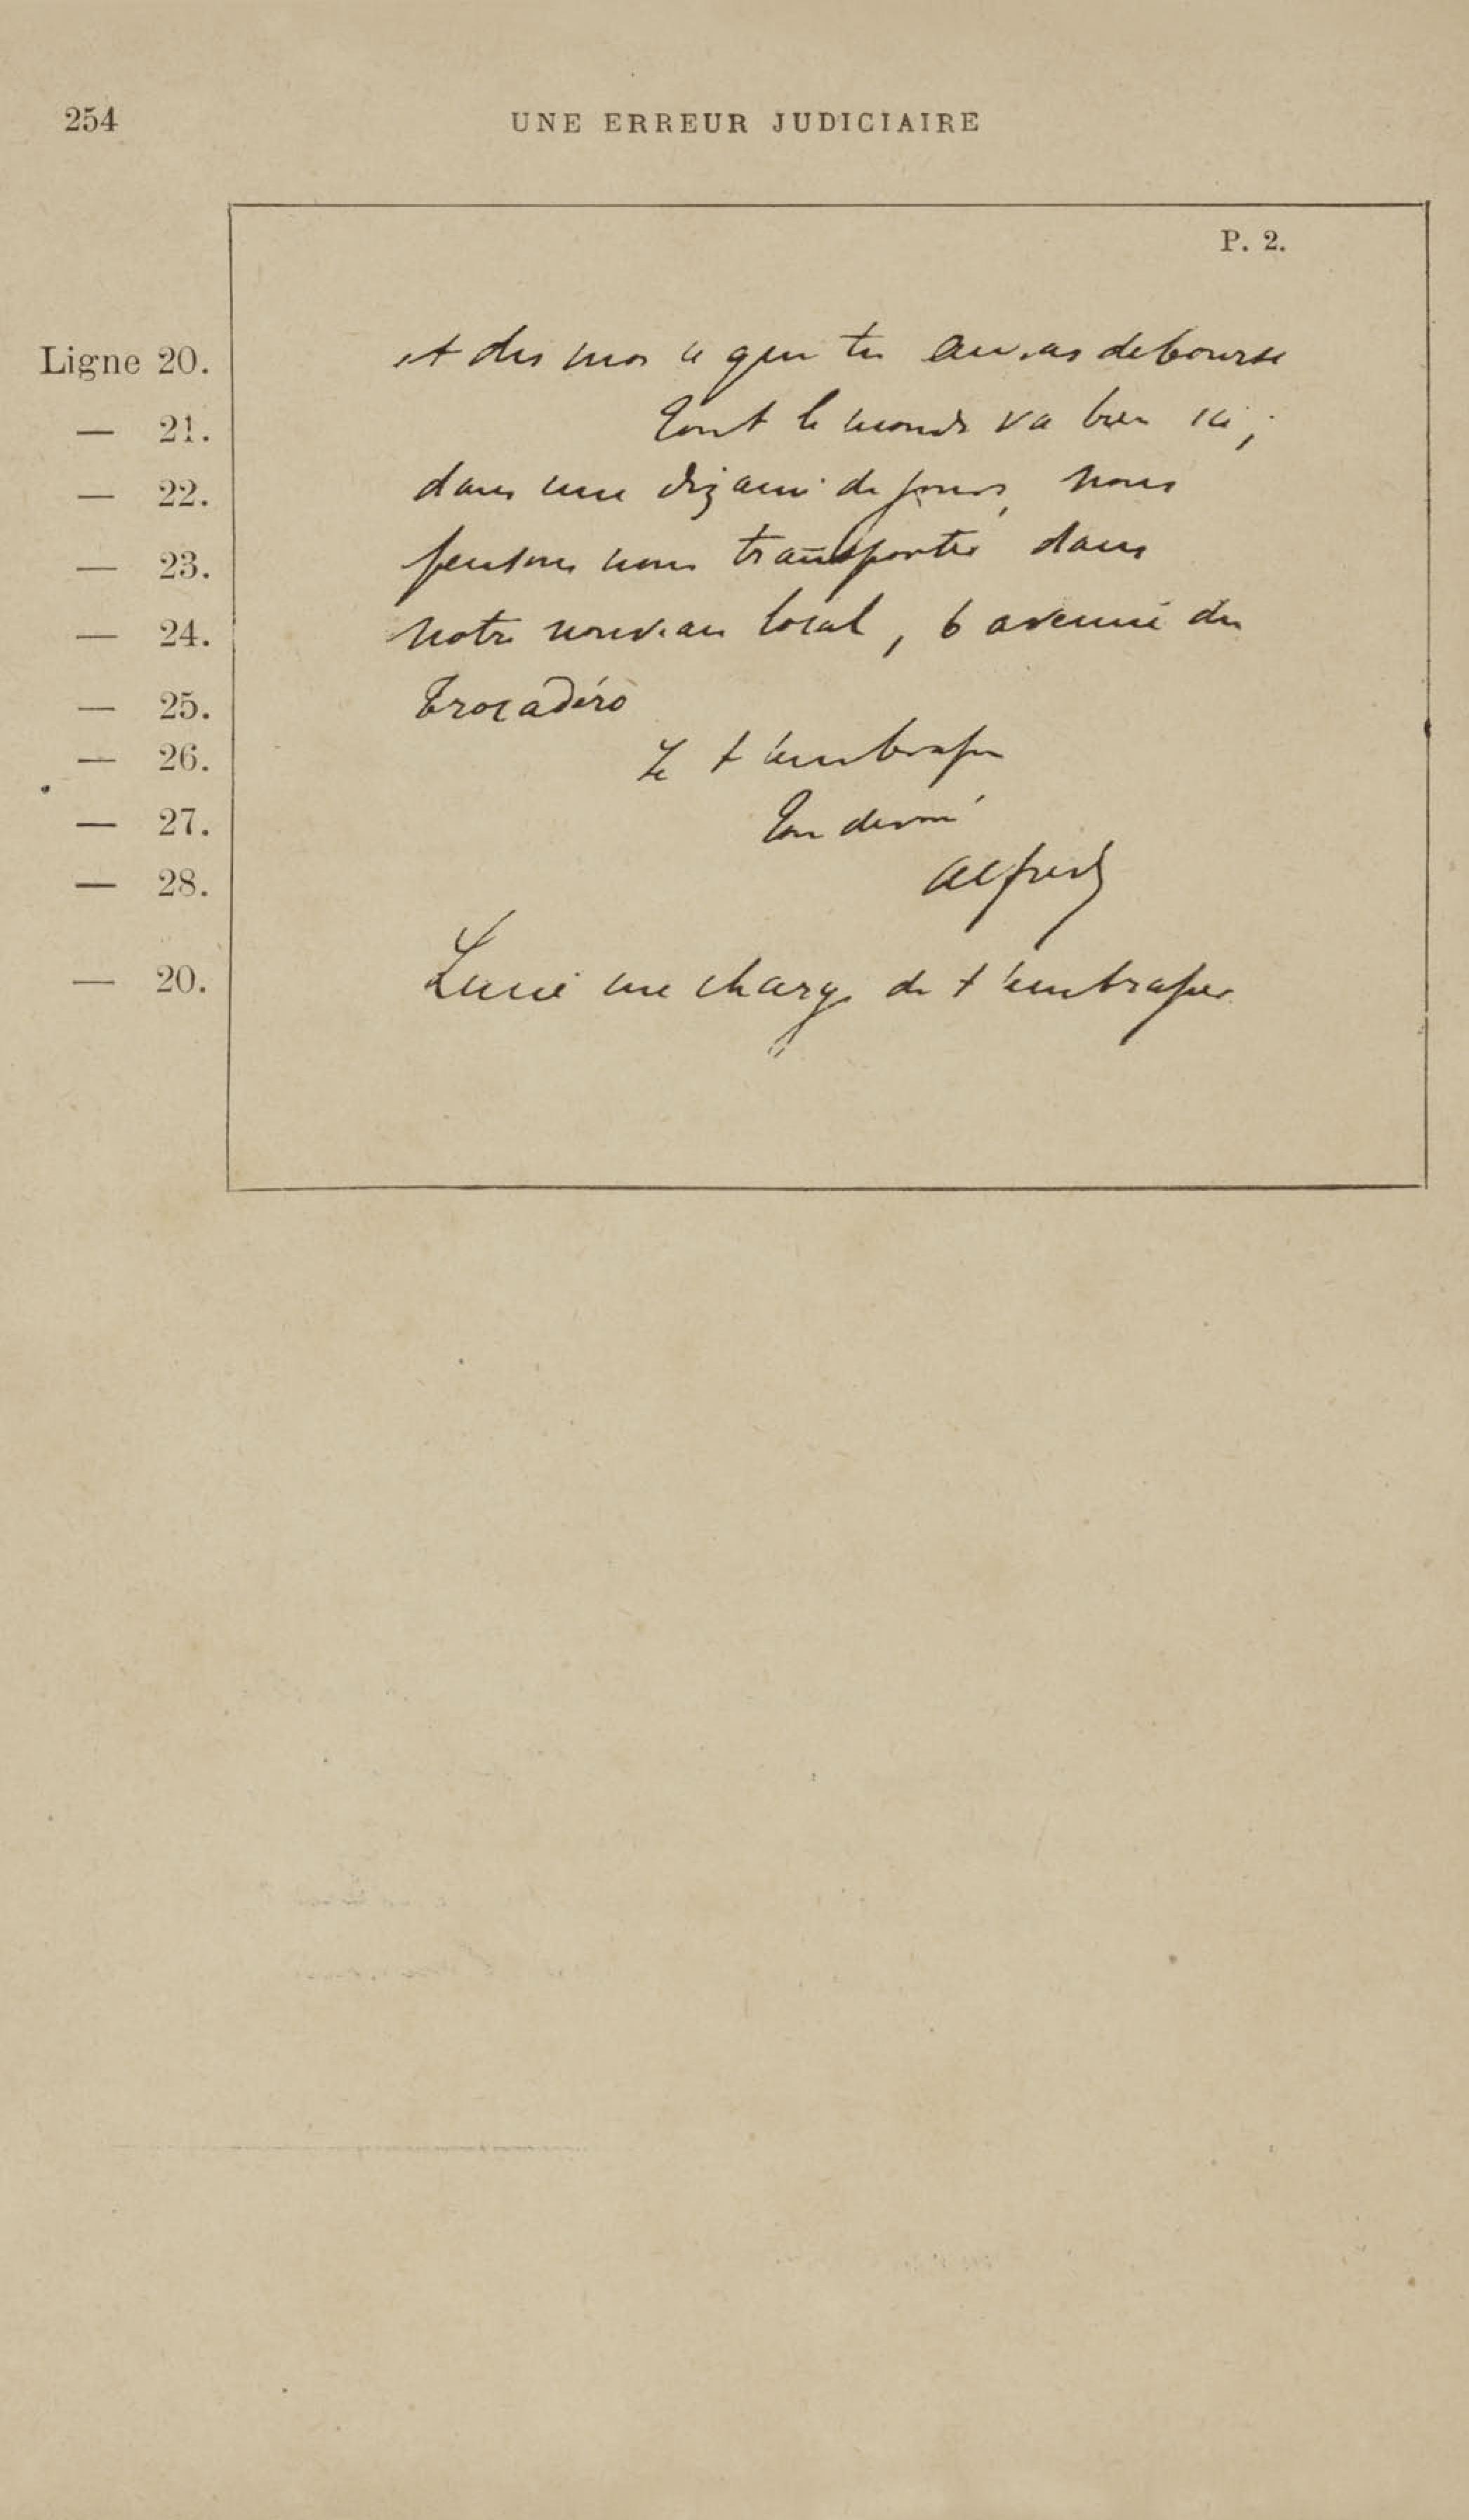 254
UNE ERREUR JUDICIAIRE
P. 2.
Ligne 20. et dis moi ce que tu auras debourse
— 21. Tout le monde va bien ici ;
— 22. dans une dizaine de jours, nous
— 23. pensons nous transporter dans
— 24. notre nouveau local, 6 avenue du
— 25. Trocadéro
— 26. Je t'embrasse
— 27. Ton dévoué
— 28. Alfred
— 20. Lucie me charge de t'embrasser